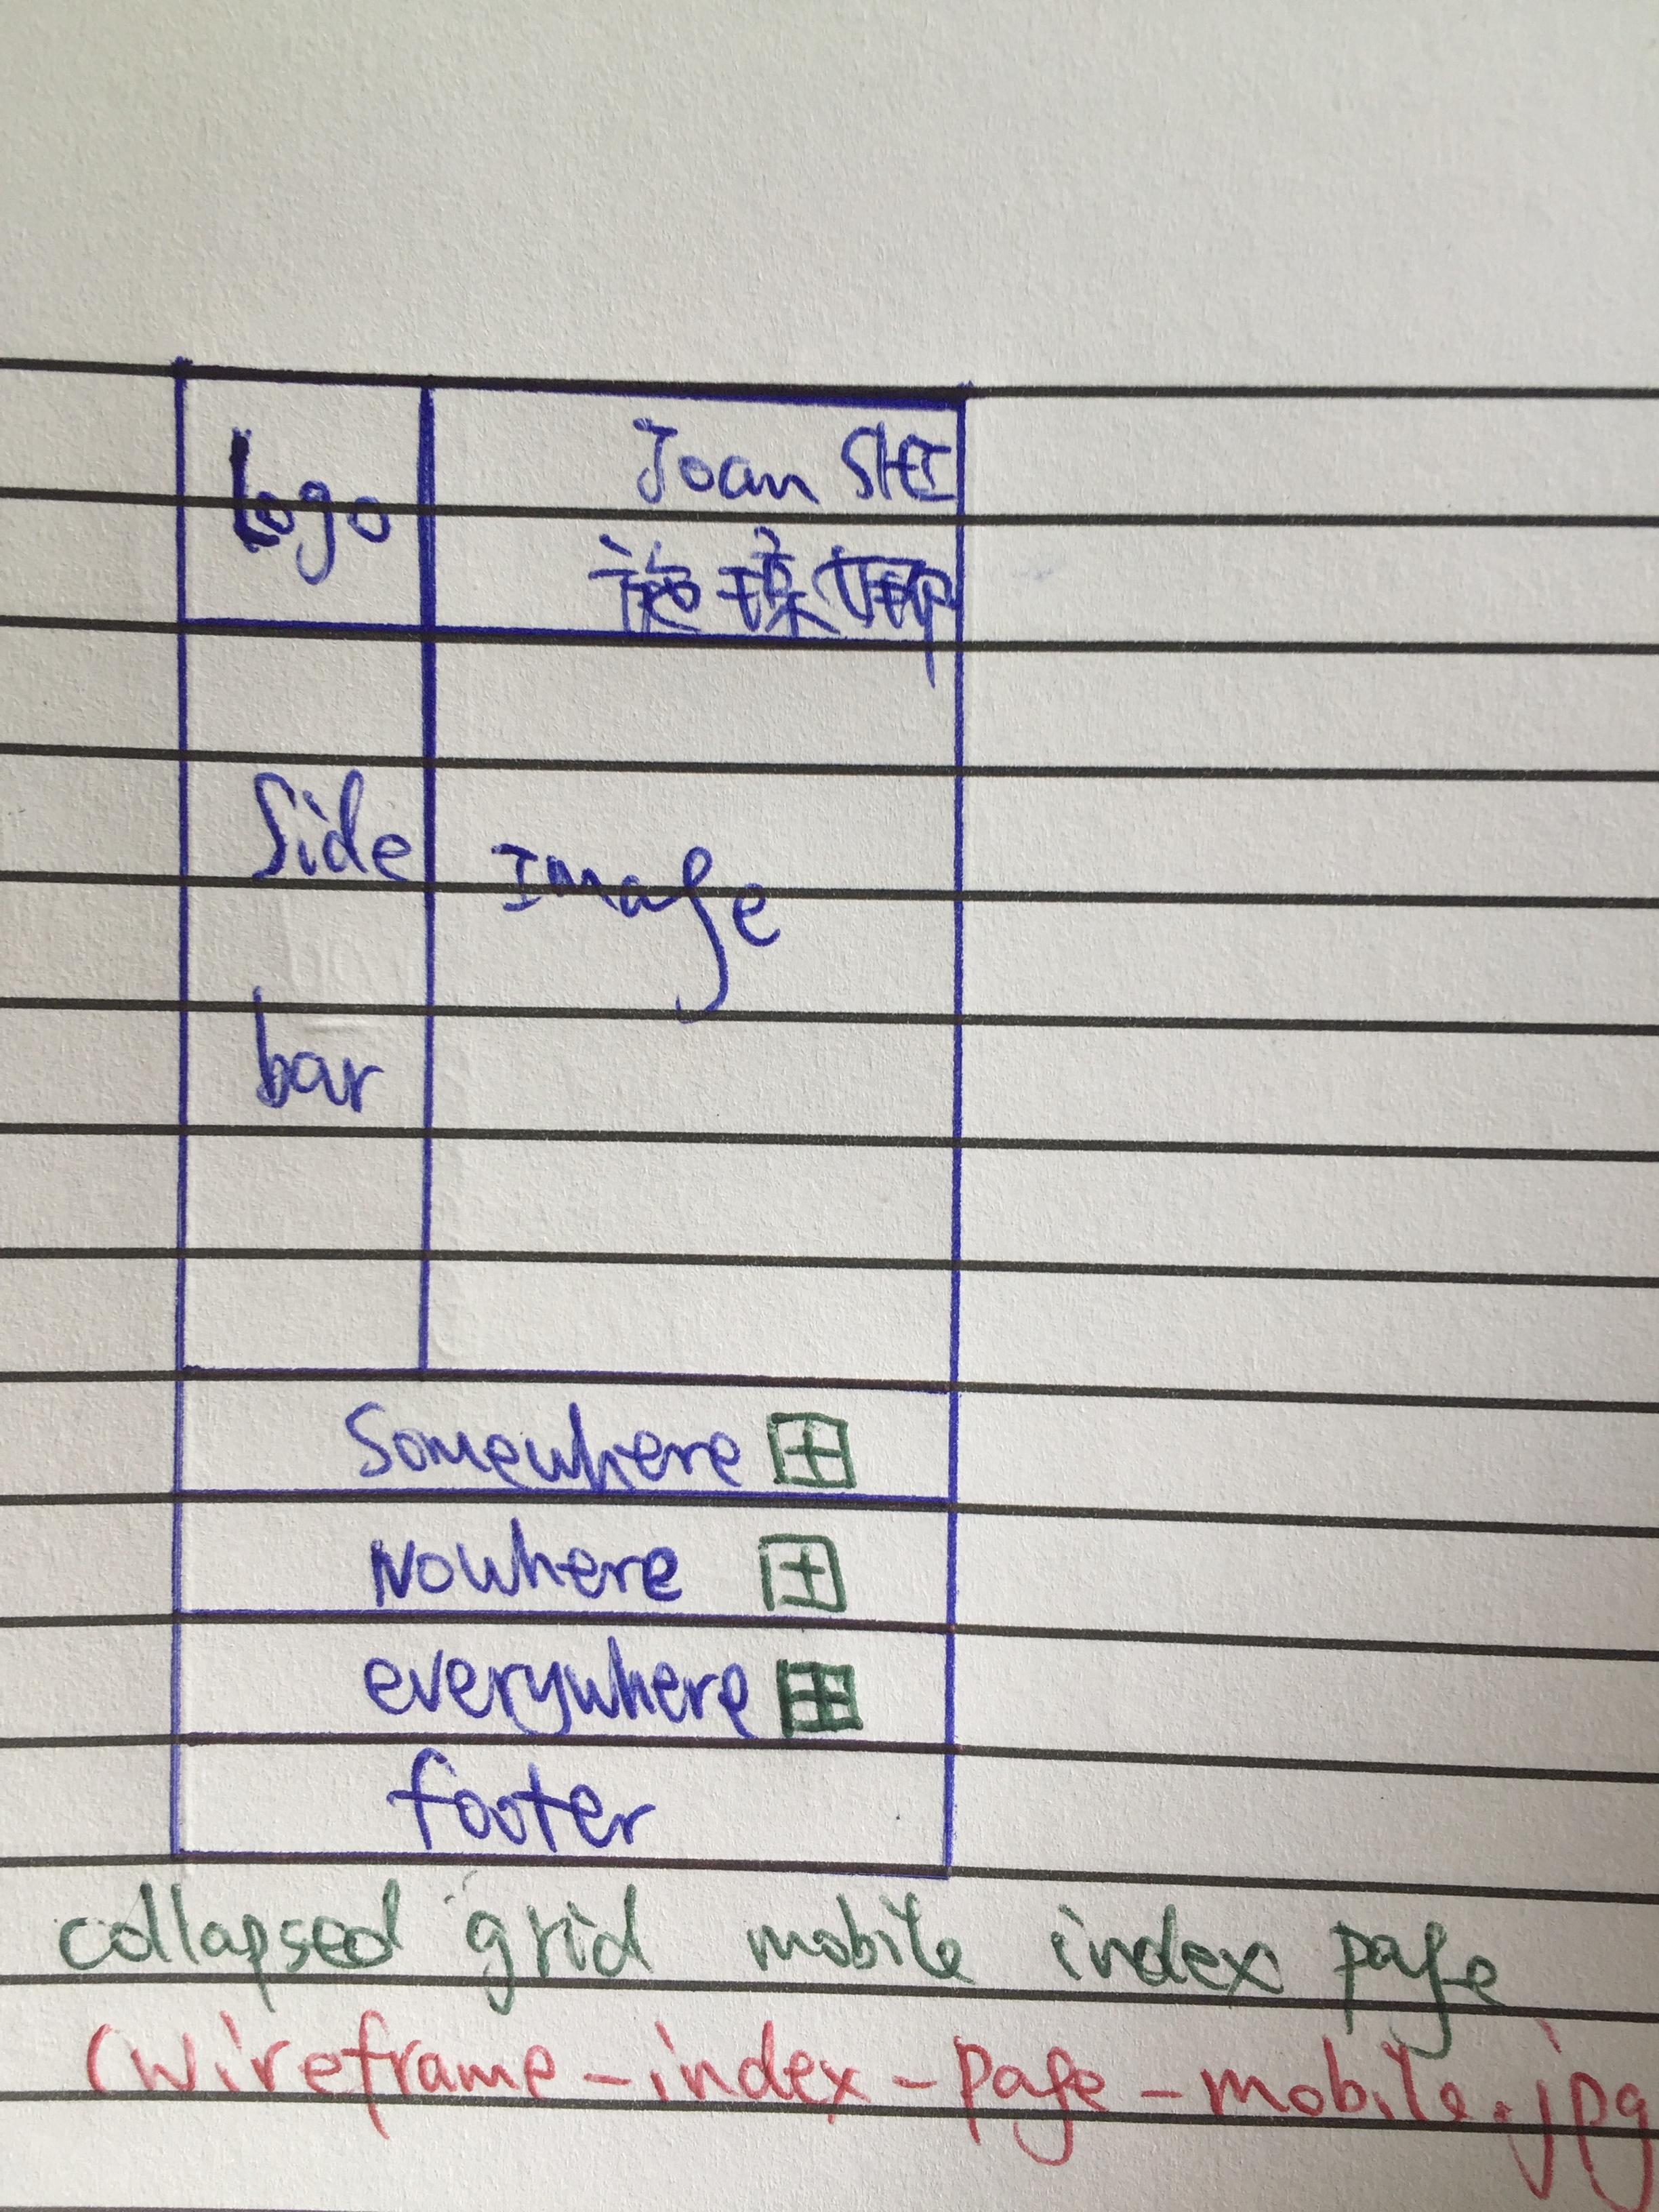 Logo
Joan SHI
施瑔卿
Side
Image
bar
Somewhere
Nowhere
everywhere
footer
collapsed grid mobile index page
(wireframe-index-page-mobile.jpg